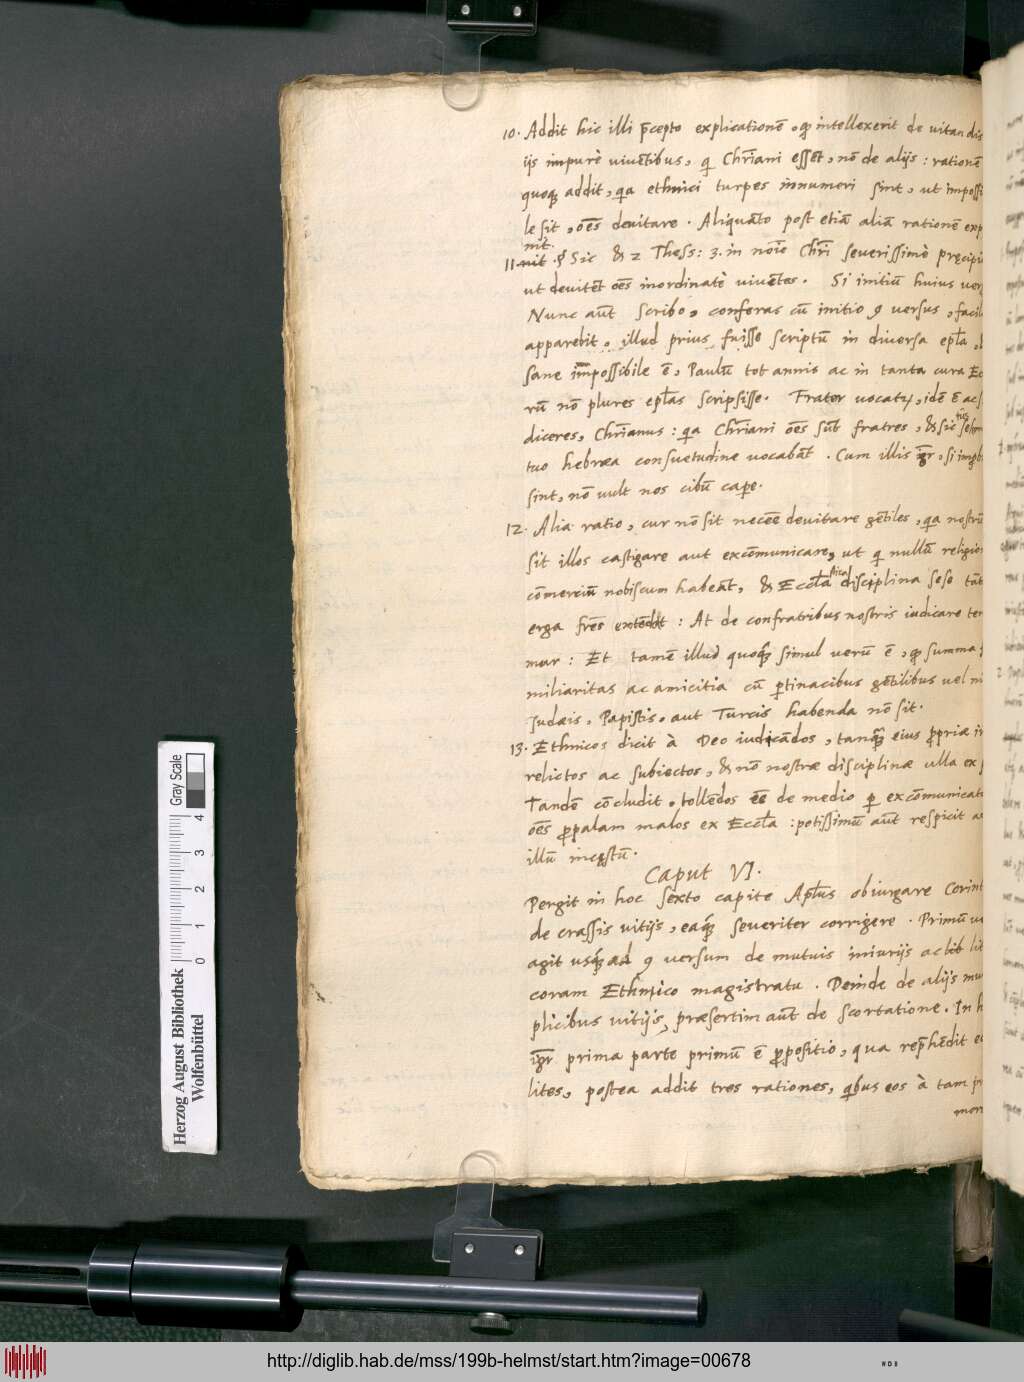 10. Addit hic illi p̄cepto explicationē, qp intellexerit de uitandis
ijs impurè uiuētibus, qi Chr̄iani essēt, nō de alijs: rationē
quoq, addit, qa ethnici turpes innumeri sint, ut impossi
le sit, oēs deuitare. Aliquāto post etiā aliā rationē exp
nit.
11. Sic & 2 Thess: 3. in noīe Chr̄i seuerissimè pręcipi
ut deuitēt oēs inordinatè uiuētes. Si initiū huius uer
Nunc aūt scribo, conferas cū initio 9 uersus, facil
apparebit, illud prius fuisse scriptū in diuersa ep̄la,
sane impossibile ē, Paulū tot annis ac in tanta cura Ec
rū nō plures ep̄las scripsisse. Frater uocatr, idē ē ac s
diceres, Chr̄ianus: qa Chr̄iani oēs sūt fratres, & sic
tuo hebræa consuetudine uocabāt. Cum illis igr, si impro
sint, nō uult nos cibū cape.
12. Alia ratio, cur nō sit necēe deuitare gētiles, qa nostrū
sit illos castigare aut excōmunicare, ut qi nullū religion
cōmerciū nobiscum habeāt, & Eccl̄astica disciplina sese tāt
erga frēs extēdit: At de confratribus nostris iudicare ten
mur: Et tamē illud quoq, simul uerū ē, qp summa
miliaritas ac amicitia cū ptinacibus gētilibus uel
Judæis, Papistis, aut Turcis habenda nō sit.
13. Ethnicos dicit à Deo iudicādos, tanq̄ eius propriæ
relictos ac subiectos, & nō nostræ disciplinæ ulla ex
Tandē cōcludit, tollēdos ēe de medio p excōmunicat
oēs propalam malos ex Eccl̄a: potissimū aūt respicit
illū incestū.
Caput VI.
Pergit in hoc sexto capite Ap̄lus obiurgare Corint
de crassis uitijs, eaq, seueriter corrigere. Primū
agit usq, ad 9 uersum de mutuis iniurijs ac lit
coram Ethnico magistratu. Deinde de alijs mul
plicibus uitijs, præsertim aūt de scortatione. In h
igr prima parte primū ē propositio, qua rep̄hēdit
lites, postea addit tres rationes, qbus eos à tam pr
mor
Herzog August Bibliothek
Wolfenbüttel
0 1 2 3 4
Gray Scale
http://diglib.hab.de/mss/199b-helmst/start.htm?image=00678
WDB